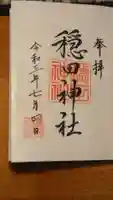 奉拝
穏田神社
令和三年七月四日